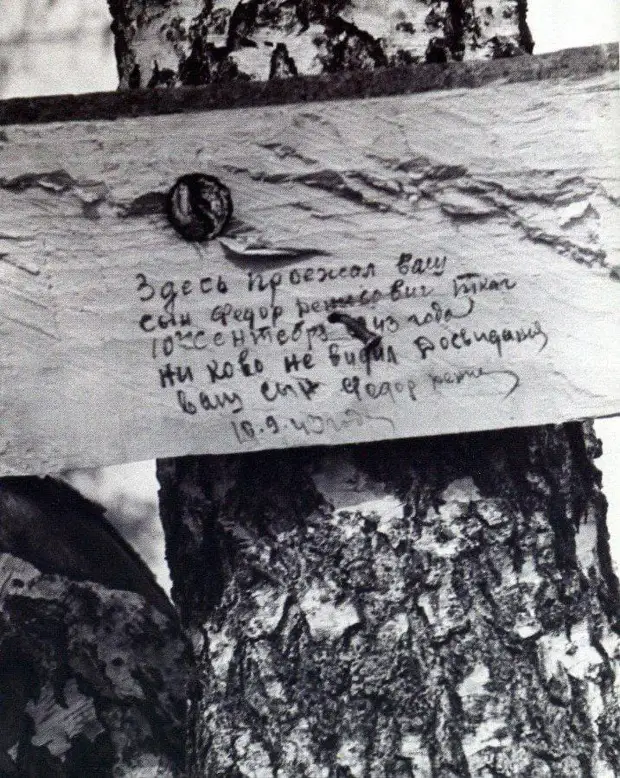 Здесь проежал ваш
сын Федор Ткач
10го Сентебря 1943 года
ни ково не видил Досвиданя
ваш сын Федор
10.9.43 году